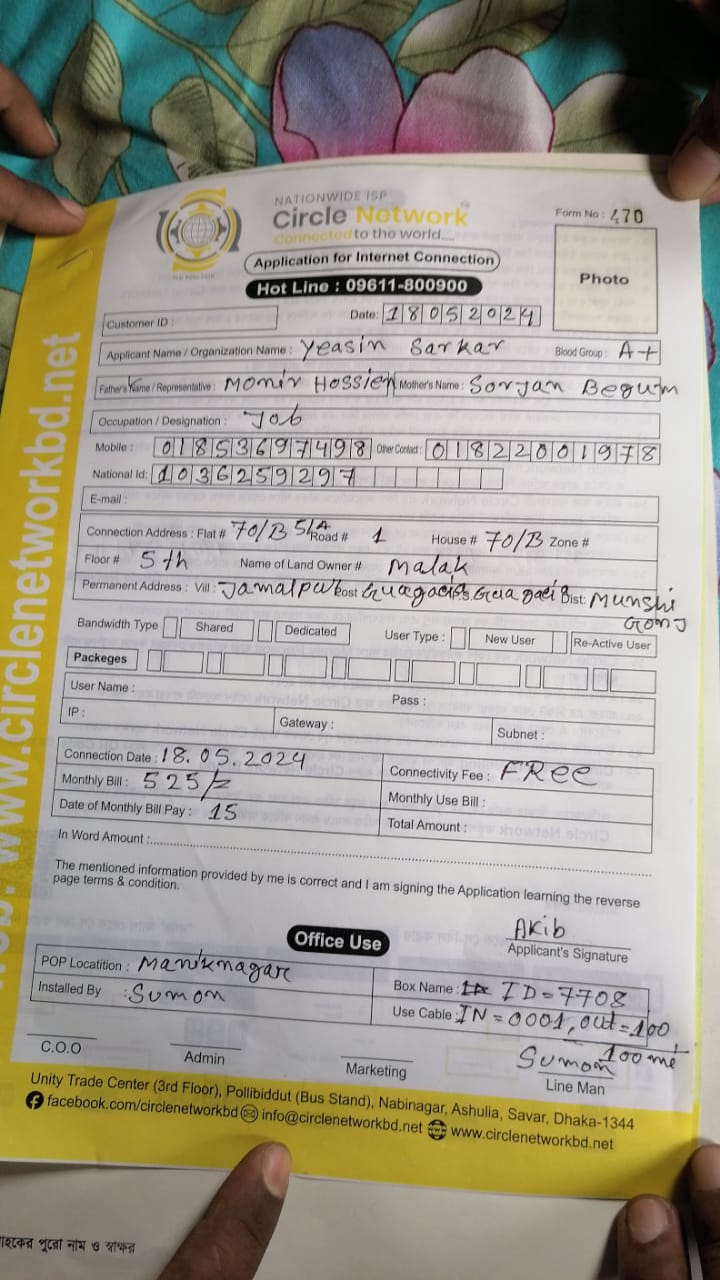 NATIONWIDE ISP
Circle Network
Connected to the world....
Form No : 470
Application for Internet Connection
Hot Line : 09611-800900
Photo
Customer ID :
Date: 18052024
Applicant Name / Organization Name : Yeasin Sarkar Blood Group : A+
Father's Name / Representative : Momir Hossien Mother's Name : Sorjan Begum
Occupation / Designation : Job
Mobile : 01853697498 Other Contact : 01822001978
National Id: 1036259297
E-mail :
Connection Address : Flat # 70/B 5/A Road # 1 House # 70/B Zone #
Floor # 5th Name of Land Owner # Malak
Permanent Address : Vill : Jamalpur Post P.S. Dist: Munshi
Gonj
Bandwidth Type Shared Dedicated User Type : New User Re-Active User
Packeges
User Name : Pass :
IP : Gateway : Subnet :
Connection Date : 18.05.2024 Connectivity Fee : FRee
Monthly Bill : 525/= Monthly Use Bill :
Date of Monthly Bill Pay : 15 Total Amount :
In Word Amount :
The mentioned information provided by me is correct and I am signing the Application learning the reverse
page terms & condition.
Akib
Applicant's Signature
Office Use
POP Locatition : Maniknagar Box Name : ID=7708
Installed By : Sumon Use Cable : IN = 0001, out = 100
100 met
Sumon
C.O.O Admin Marketing Line Man
Unity Trade Center (3rd Floor), Pollibiddut (Bus Stand), Nabinagar, Ashulia, Savar, Dhaka-1344
facebook.com/circlenetworkbd info@circlenetworkbd.net www.circlenetworkbd.net
www.circlenetworkbd.net
পুরো নাম ও স্বাক্ষর